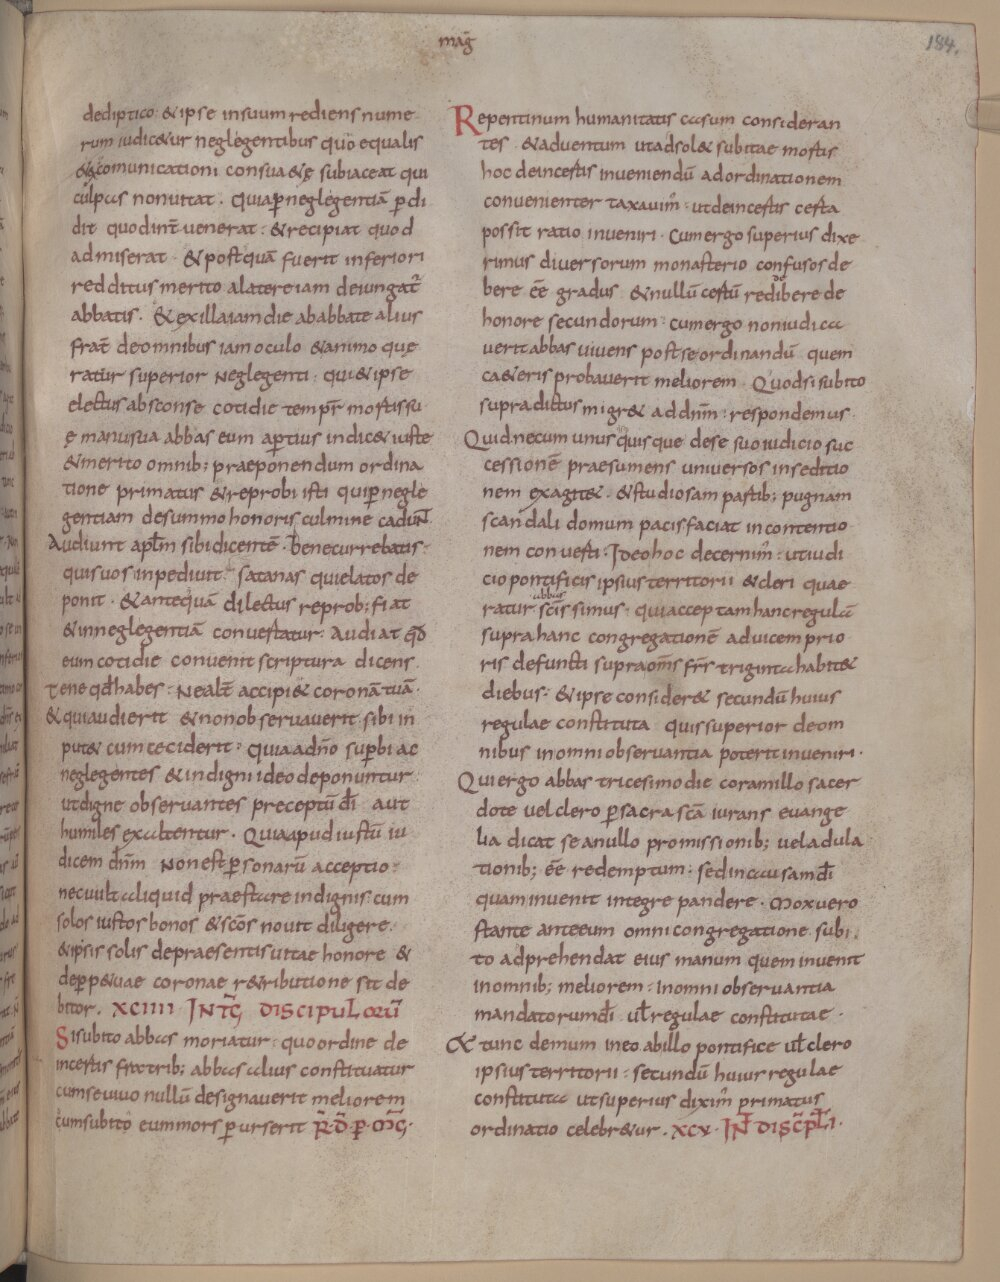 mag̃
184.
dediptico: & ipse insuum rediens nume
rum iudic&ur neglegentibus quo equalis
& excomunicationi consua&ę subiaceat qui
culpas nonuitat. Quiaꝑneglegentiā ꝑdi
dit quodint̄ uenerat: & recipiat quod
admiserat. & postquā fuerit inferiori
redditus merito alatereiam deiungat̃
abbatis. & exillaiamdie ababbate alius
frat̄ deomnibus iam oculo & animo quę
ratur superior neglegenti: qui & ipse
electus absconse cotidie temp̄r mostissu
ę manusua abbas eum aꝑtius indic& iuste
& merito omnib; praeponendum ordina
tione primatus & reprobi isti quiꝑnegle
gentiam desummo honoris culmine cadunt
Audiunt apłm sibidicentē. benecurrebatis:
quisuos inpediuit. satanas quielatos de
ponit. & antequā dilectus reprob; fiat
& inneglegentiā conuestatur: Audiat qđ
eum cotidie conuenit scriptura dicens.
Tene qđ habes: Nealt̄ accipi& coronā tuā.
& quiaudierit & nonobseruauerit sibi in
put& cum ceciderit: quiaadn̄o suꝑbi ac
neglegentes & indigni ideo deponuntur:
ut digne obseruantes preceptū dī aut
humiles exaltentur. Quiaapud iustū iu
dicem dn̄m Non est ꝑsonarū acceptio:
necuult aliquid praestare indignis: cum
solos iustos bonos & scōs nouit diligere.
& ipsis solis depraesentis uitae honore &
deꝑp&uae coronae r&ributione sit de
bitor. XCIIII INT̃G DISCIPULORŪ
Sisubito abbas moriatur: quo ordine de
incestis fratrib; abbas alius constituatur
cumseuiuo nullū designauerit meliorem
cumsubito eummors ꝑurserit R̃D̃ ꝑ M̃G.
Repentinum humanitatis casum consideran
tes. & aduentum utadsol& subitae mostis
hoc deincestis inueniendū ad ordinationem
conuenienter taxauim̃: utdeincestis cesta
possit ratio inueniri. Cumergo superius dixe
rimus diuersorum monasterio confusos de
bere eē gradus & nullū cestū redhibere de
honore secundorum: cumergo noniudica
uerit abbas uiuens post se ordinandū quem
ca&eris probauerit meliorem. Quodsi subito
supradictus migr& ad dn̄m: respondemus.
Quidnecum unus quisque dese suo iudicio suc
cessionē praesumens uniuersos inseditio
nem exagit&. & studiosam pastib; pugnam
scandali domum pacisfaciat incontentio
nem conuesti. Ideo hoc decernim̃: utiudi
cio pontificis ipsius territorii & cleri quae
ratur abbas scīssimus: qui acceptam hanc regulā
supra hanc congregationē aduicem prio
ris defuncti supraoms̄ fr̄s triginta habit&
diebus: & ipse consider& secundū huius
regulae constituta quissuperior deom
nibus inomni obseruantia poterit inueniri.
Qui ergo abbas tricesimo die coramillo sacer
dote uel clero ꝑsacrasc̄a iurans euange
lia dicat se anullo promissionib; uel adula
tionib; eē redemptum: sed incausam dī
quam inuenit integre pandere. Mox uero
stante anteeum omni congregatione subi
to adprehendat eius manum quem inuenit
inomnib; meliorem: inomni obseruantia
mandatorum dī uł regulae constitutae.
& tunc demum ineo abillo pontifice uł clero
ipsius territorii: secundū huius regulae
constituta ut superius dixim̃ primatus
ordinatio celebr&ur. XCV. INT̄ DISC̄PLI.